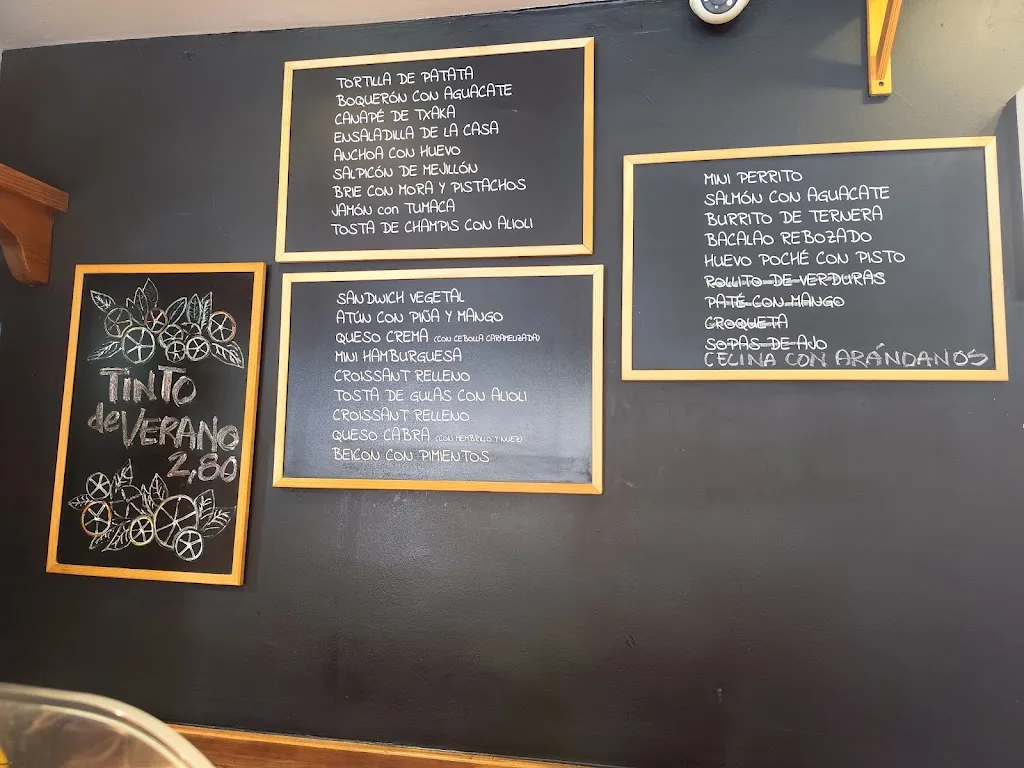 TORTILLA DE PATATA
BOQUERÓN CON AGUACATE
CANAPÉ DE TXAKA
ENSALADILLA DE LA CASA
ANCHOA CON HUEVO
SALPICÓN DE MEJILLÓN
BRIE CON MORA Y PISTACHOS
JAMÓN CON TUMACA
TOSTA DE CHAMPIS CON ALIOLI
TINTO
de VERANO
2,80
SANDWICH VEGETAL
ATÚN CON PIÑA Y MANGO
QUESO CREMA (CON CEBOLLA CARAMELIZADA)
MINI HAMBURGUESA
CROISSANT RELLENO
TOSTA DE GULAS CON ALIOLI
CROISSANT RELLENO
QUESO CABRA (CON MEMBRILLO Y NUEZ)
BEICON CON PIMIENTOS
MINI PERRITO
SALMÓN CON AGUACATE
BURRITO DE TERNERA
BACALAO REBOZADO
HUEVO POCHÉ CON PISTO
ROLLITO DE VERDURAS
PATÉ CON MANGO
CROQUETA
SOPAS DE AJO
CECINA CON ARÁNDANOS